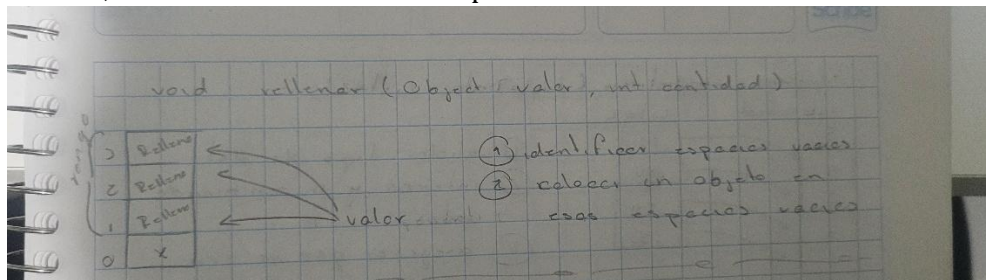 void rellenar (Object valor, int cantidad)
rango
3 Relleno
2 Relleno
1 Relleno
0 X
valor
1 identificar espacios vacios
2 colocar un objeto en
esos espacios vacios